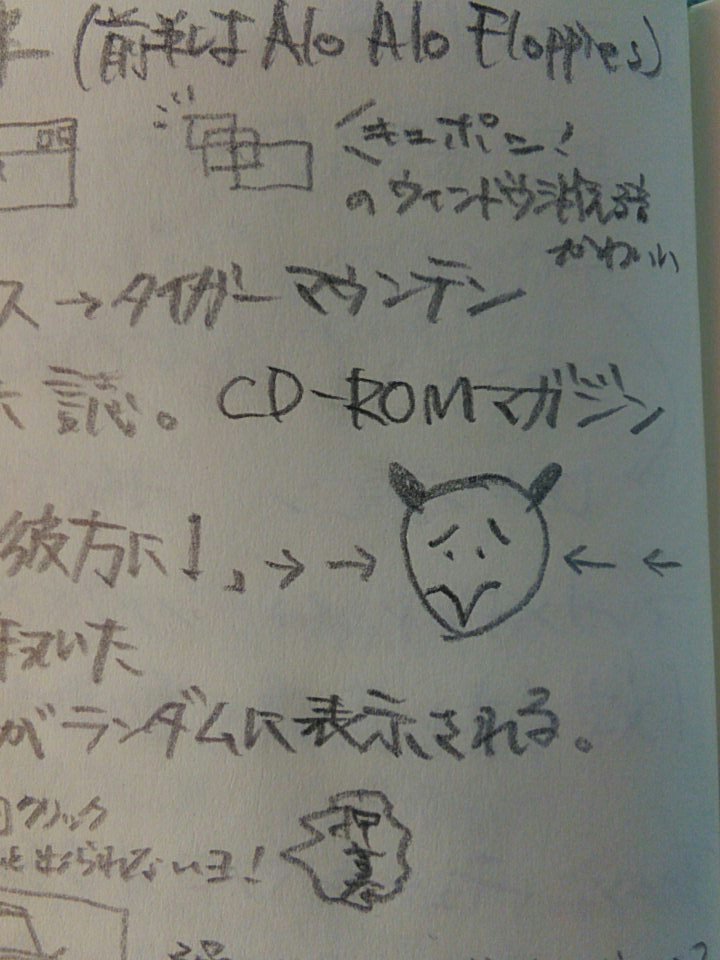 (前半は Alo Alo Floppies)
キュポン!
のウィンドウ消える時
かわいい
ス→タイガーマウンテン
誌。CD-ROMマガジン
彼方に」、→→ ← ←
いた
がランダムに表示される。
クリック
と出られないヨ!
押忍